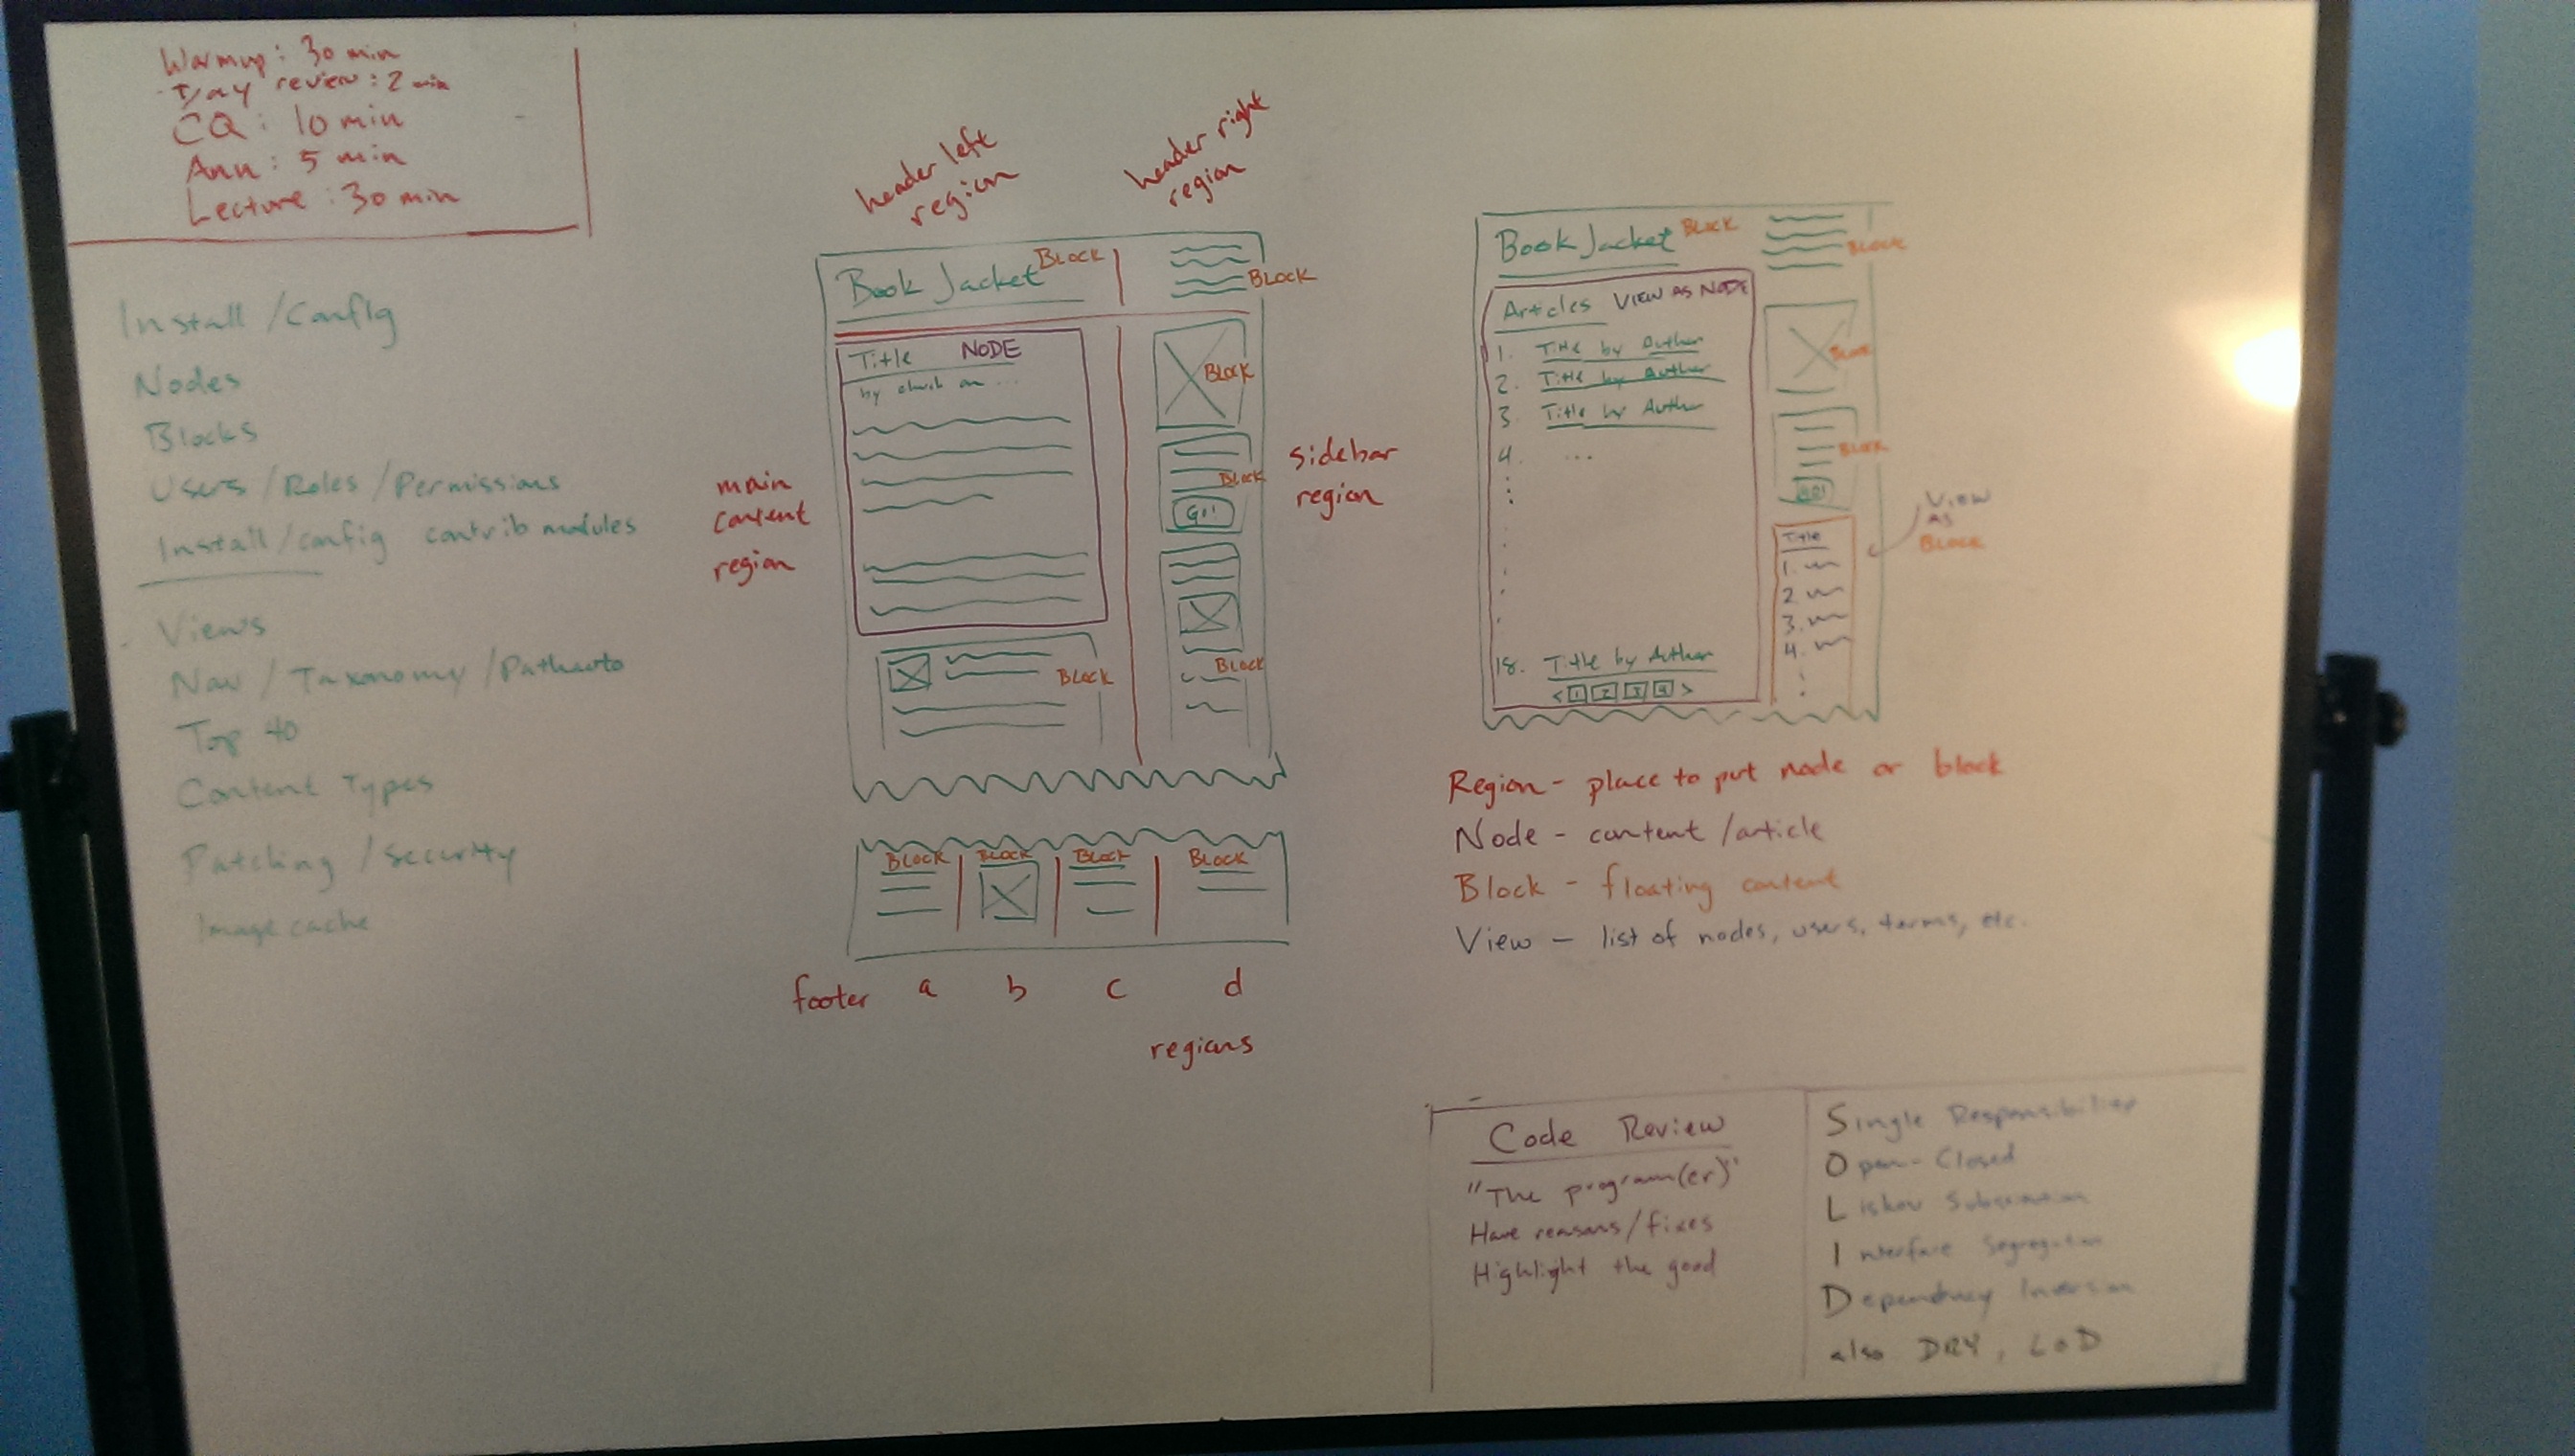 Warmup: 30 min
Day review: 2 min
CQ: 10 min
Ann: 5 min
Lecture: 30 min
Install/Config
Nodes
Blocks
Users/Roles/Permissions
Install/config contrib modules
Views
Nav/Taxonomy/Pathauto
Top 40
Content Types
Patching/security
Image cache
header left
region
header right
region
Book Jacket
BLOCK
BLOCK
Title NODE
by on ...
BLOCK
BLOCK
GO!
BLOCK
BLOCK
main
content
region
sidebar
region
BLOCK
BLOCK
BLOCK
BLOCK
footer a b c d
regions
Book Jacket
BLOCK
BLOCK
Articles VIEW AS NODE
1. Title by Author
2. Title by Author
3. Title by Author
4. ...
18. Title by Author
< 1 2 3 4 >
BLOCK
BLOCK
GO!
VIEW
AS
BLOCK
Title
1.
2.
3.
4.
Region - place to put node or block
Node - content/article
Block - floating content
View - list of nodes, users, terms, etc.
Code Review
"The program(er)"
Have reasons/fixes
Highlight the good
Single Responsibility
Open-Closed
Liskov
Interface Segregation
Dependency Inversion
also DRY, LoD